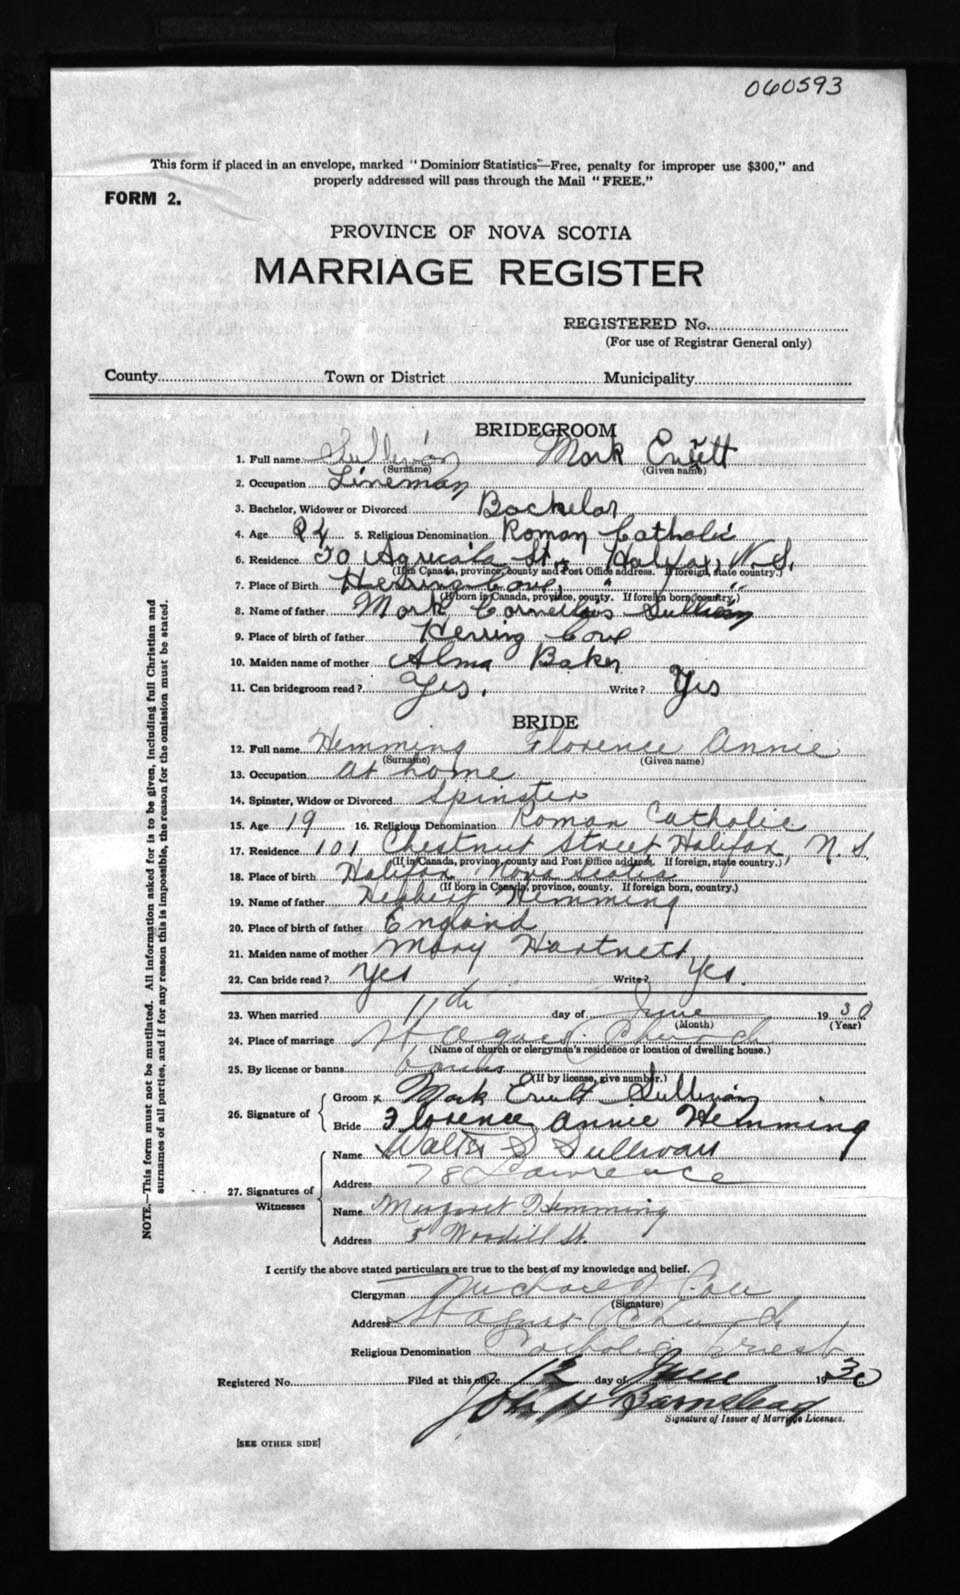 060593
This form if placed in an envelope, marked "Dominion Statistics—Free, penalty for improper use $300," and
properly addressed will pass through the Mail "FREE."
FORM 2.
PROVINCE OF NOVA SCOTIA
MARRIAGE REGISTER
REGISTERED No.
(For use of Registrar General only)
County Town or District Municipality
BRIDEGROOM
1. Full name Sullivan Mark Evrett
(Surname) (Given name)
2. Occupation Lineman
3. Bachelor, Widower or Divorced Bachelor
4. Age 24 5. Religious Denomination Roman Catholic
6. Residence 50 Agricola St., Halifax, N.S.
(If in Canada, province, county and Post Office address. If foreign, state country.)
7. Place of Birth Herring Cove, " "
(If born in Canada, province, county. If foreign born, country.)
8. Name of father Mark Cornelius Sullivan
9. Place of birth of father Herring Cove
10. Maiden name of mother Alma Baker
11. Can bridegroom read? Yes. Write? Yes
BRIDE
12. Full name Hemming Florence Annie
(Surname) (Given name)
13. Occupation at home
14. Spinster, Widow or Divorced Spinster
15. Age 19 16. Religious Denomination Roman Catholic
17. Residence 101 Chestnut Street Halifax, N.S.
(If in Canada, province, county and Post Office address. If foreign, state country.)
18. Place of birth Halifax Nova Scotia
(If born in Canada, province, county. If foreign born, country.)
19. Name of father Hemming
20. Place of birth of father England
21. Maiden name of mother Mary Hartnett
22. Can bride read? Yes Write? Yes.
23. When married 11th day of June 1930
(Month) (Year)
24. Place of marriage St Agnes Church
(Name of church or clergyman's residence or location of dwelling house.)
25. By license or banns banns
(If by license, give number.)
26. Signature of
Groom x Mark Evrett Sullivan
Bride Florence Annie Hemming
27. Signatures of Witnesses
Name Walter S Sullivan
Address 78 Lawrence
Name Margaret Hemming
Address 5 Woodill St.
I certify the above stated particulars are true to the best of my knowledge and belief.
Clergyman Michael
(Signature)
Address St Agnes Church
Religious Denomination Catholic Priest
Registered No. Filed at this office 12 day of June 1930
John H Barnstead
Signature of Issuer of Marriage Licenses.
[SEE OTHER SIDE]
NOTE.—This form must not be mutilated. All information asked for is to be given, including full Christian and
surnames of all parties, and if for any reason this is impossible, the reason for the omission must be stated.